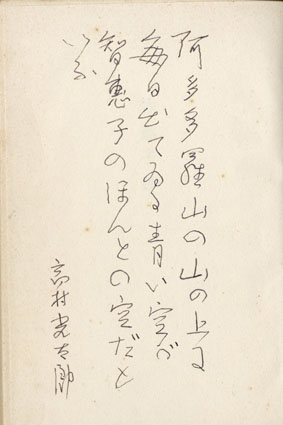 阿多多羅山の山の上に
毎日出てゐる青い空が
智惠子のほんとの空だと
いふ
高村光太郎